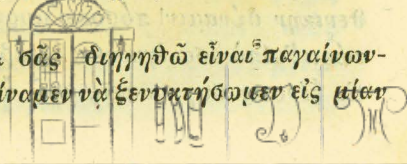 σᾶς διηγηθῶ εἶναι παγαίνων-
ίναμεν νὰ ξενυκτήσωμεν εἰς μίαν